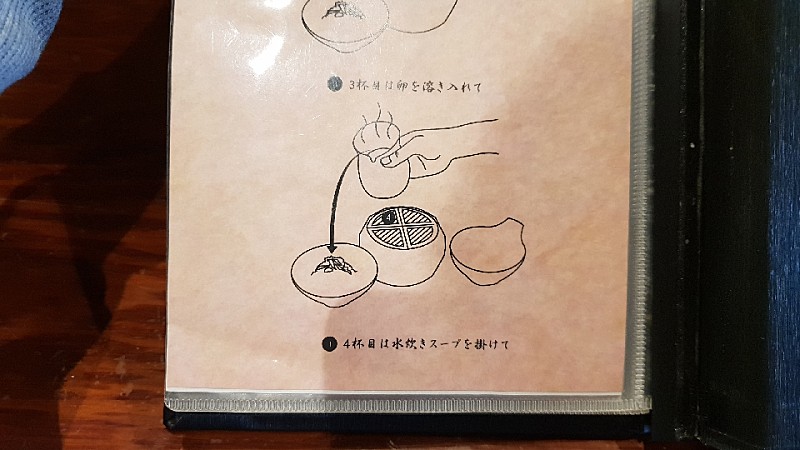 3杯目は卵を溶き入れて
4
4杯目は水炊きスープを掛けて